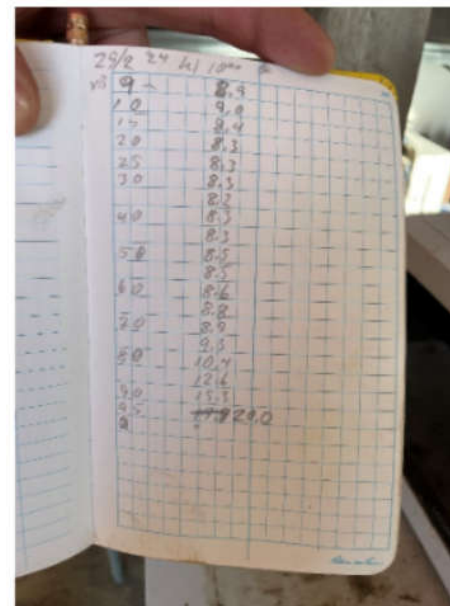 29/2 24 kl 10⁰⁰
9 - 8.9
10 9.0
15 8.4
20 8.3
25 8.3
30 8.3
8.2
40 8.3
8.3
50 8.5
8.5
60 8.6
8.8
70 8.9
9.3
80 10.4
12.6
90 15.3
95 20.0